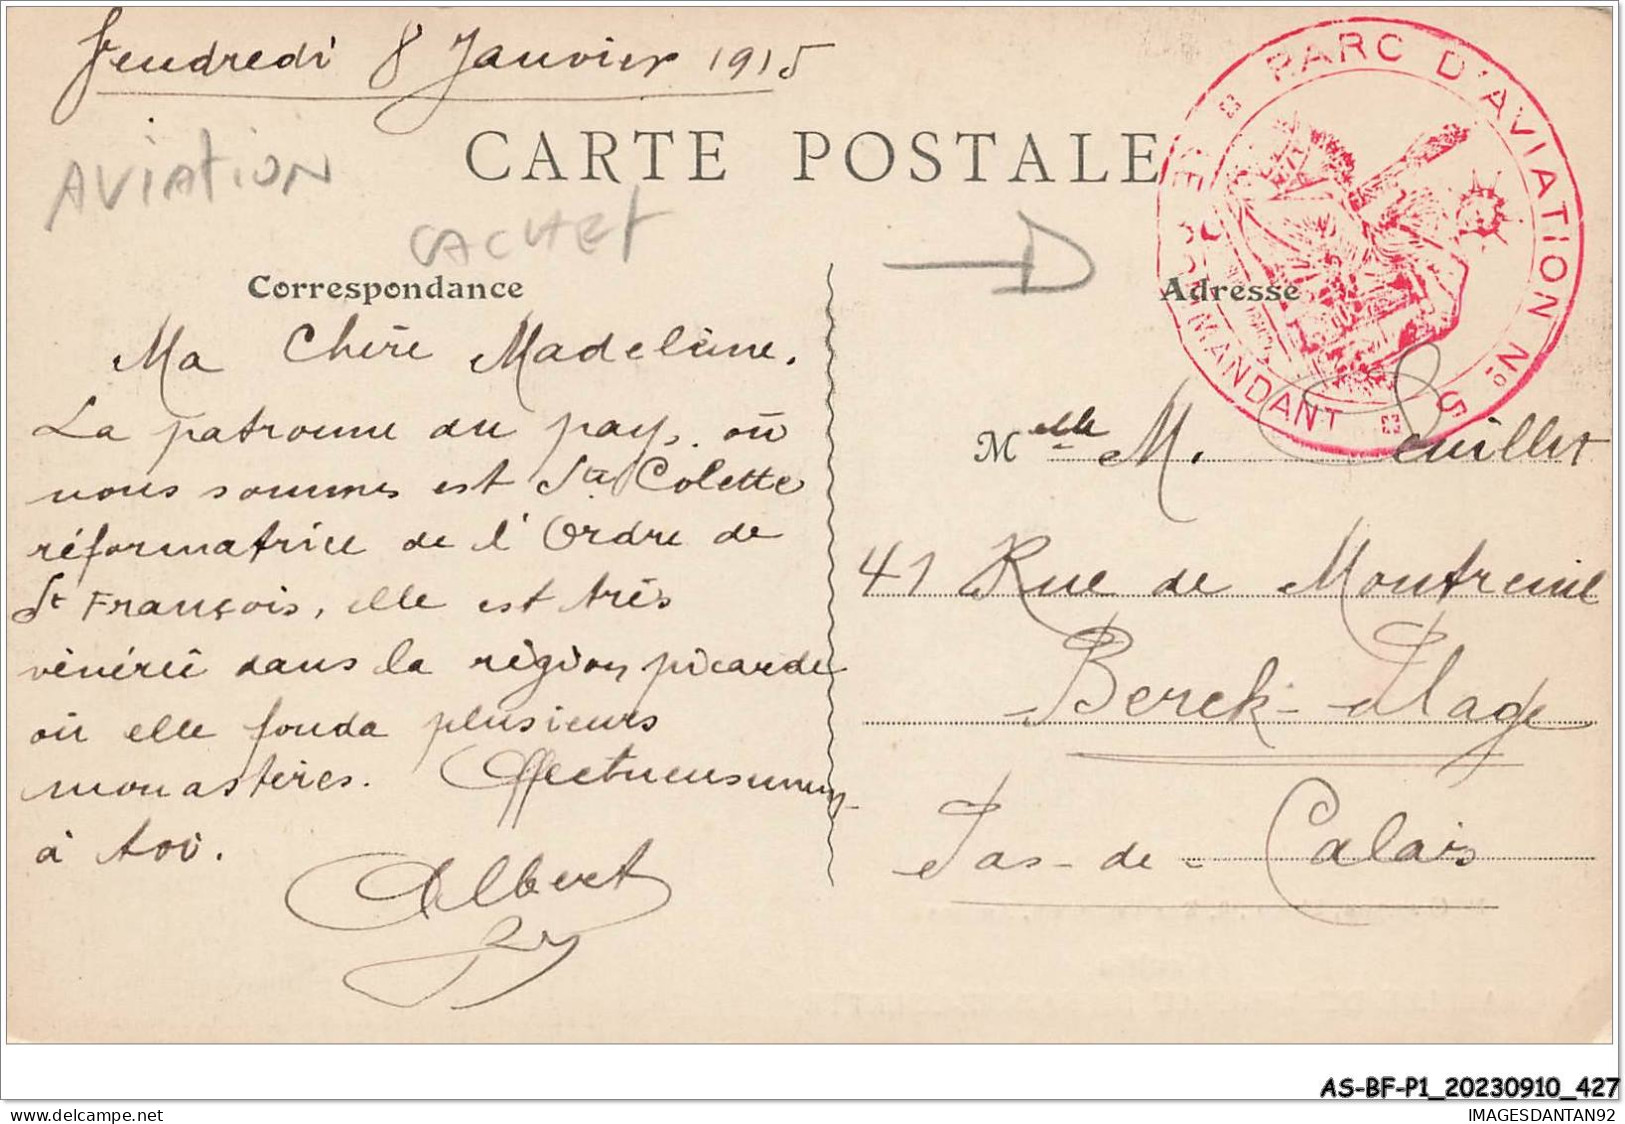 Vendredi 8 Janvier 1915
AVIATION
CACHET
CARTE POSTALE
PARC D'AVIATION N° 5
COMMANDANT
Correspondance
Ma Chère Madeleine.
La patronne du pays où
nous sommes est Ste Colette
réformatrice de l'Ordre de
St François, elle est très
vénérée dans la région picarde
où elle fonda plusieurs
monastères. Affectueusement
à toi.
Albert
Adresse
Melle M.
41 Rue de Montreuil
Berck-Plage
Pas-de-Calais
AS-BF-P1_20230910_427
www.delcampe.net
IMAGESDANTAN92